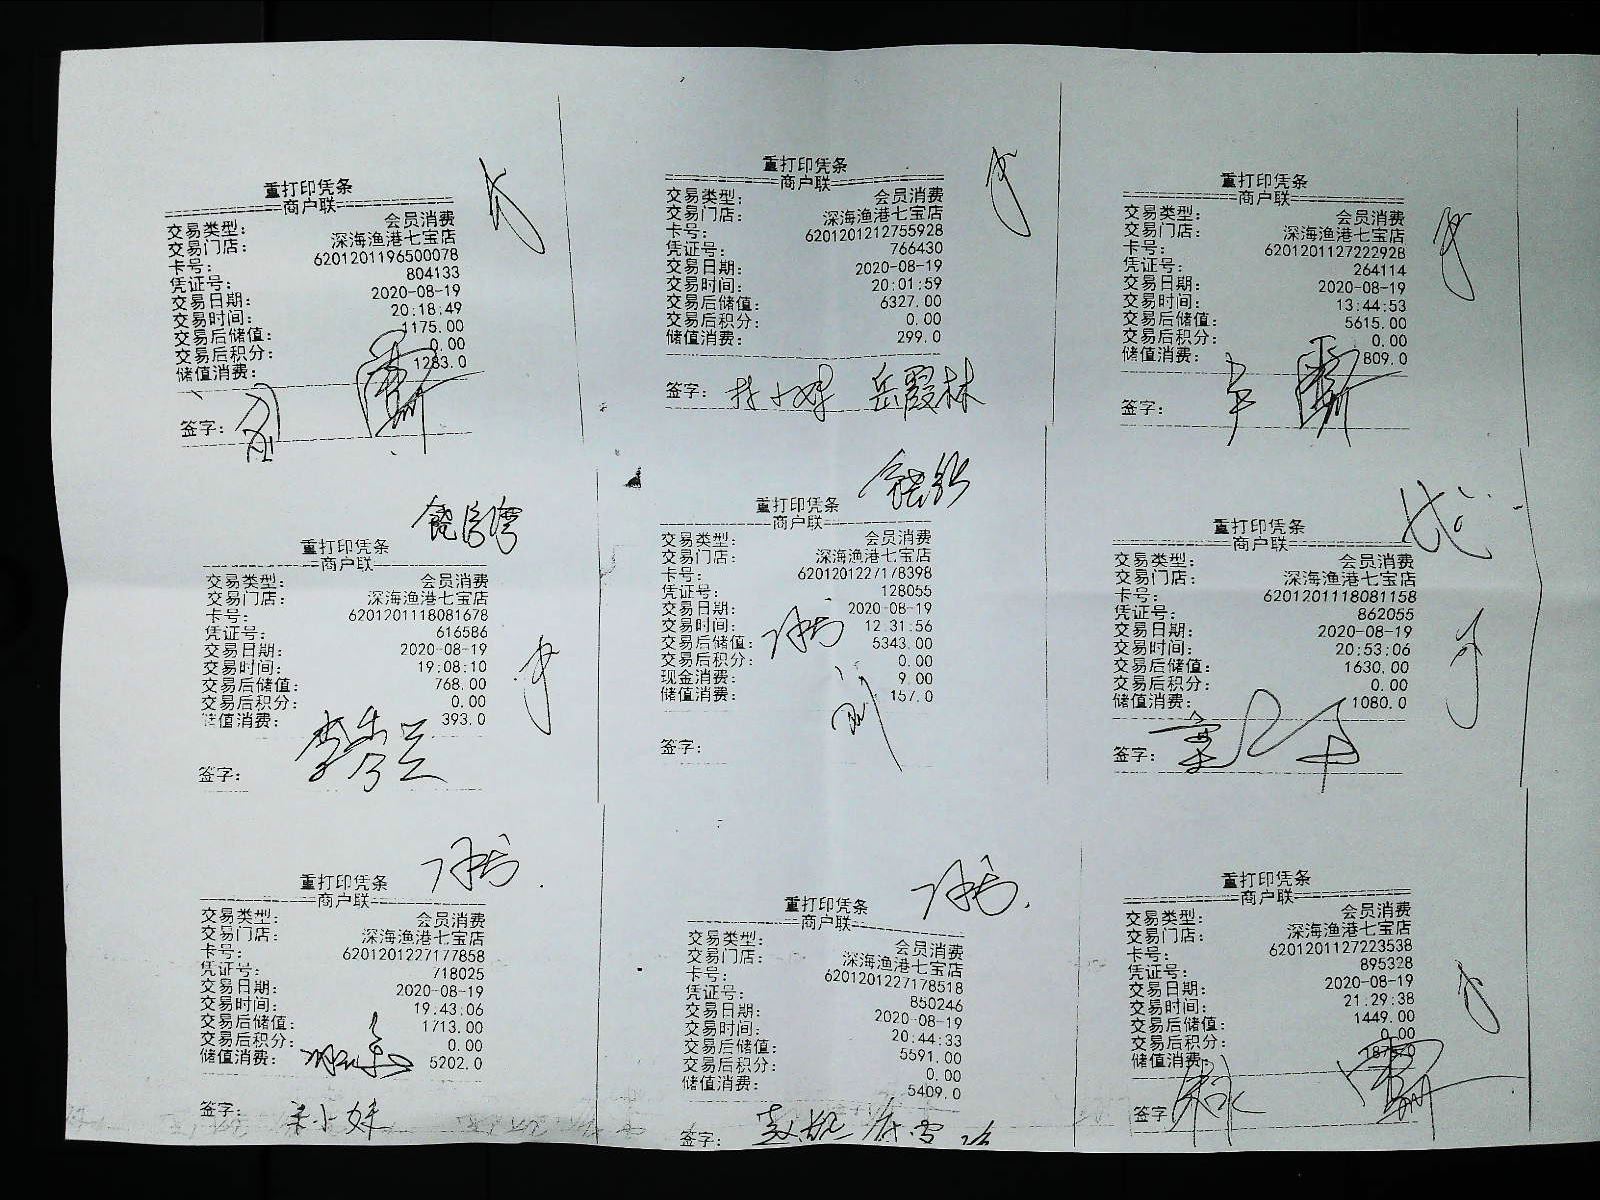 重打印凭条
商户联
交易类型: 会员消费
交易门店: 深海渔港七宝店
卡号: 6201201196500078
凭证号: 804133
交易日期: 2020-08-19
交易时间: 20:18:49
交易后储值: 1175.00
交易后积分: 0.00
储值消费: 1283.0
签字:
重打印凭条
商户联
交易类型: 会员消费
交易门店: 深海渔港七宝店
卡号: 6201201212755928
凭证号: 766430
交易日期: 2020-08-19
交易时间: 20:01:59
交易后储值: 6327.00
交易后积分: 0.00
储值消费: 299.0
签字: 岳霞林
重打印凭条
商户联
交易类型: 会员消费
交易门店: 深海渔港七宝店
卡号: 6201201127222928
凭证号: 264114
交易日期: 2020-08-19
交易时间: 13:44:53
交易后储值: 5615.00
交易后积分: 0.00
储值消费: 809.0
签字:
重打印凭条
商户联
交易类型: 会员消费
交易门店: 深海渔港七宝店
卡号: 6201201118081678
凭证号: 616586
交易日期: 2020-08-19
交易时间: 19:08:10
交易后储值: 768.00
交易后积分: 0.00
储值消费: 393.0
签字:
重打印凭条
商户联
交易类型: 会员消费
交易门店: 深海渔港七宝店
卡号: 6201201227178398
凭证号: 128055
交易日期: 2020-08-19
交易时间: 12:31:56
交易后储值: 5343.00
交易后积分: 0.00
现金消费: 9.00
储值消费: 157.0
签字:
重打印凭条
商户联
交易类型: 会员消费
交易门店: 深海渔港七宝店
卡号: 6201201118081158
凭证号: 862055
交易日期: 2020-08-19
交易时间: 20:53:06
交易后储值: 1630.00
交易后积分: 0.00
储值消费: 1080.0
签字:
重打印凭条
商户联
交易类型: 会员消费
交易门店: 深海渔港七宝店
卡号: 6201201227177858
凭证号: 718025
交易日期: 2020-08-19
交易时间: 19:43:06
交易后储值: 1713.00
交易后积分: 0.00
储值消费: 5202.0
签字:
重打印凭条
商户联
交易类型: 会员消费
交易门店: 深海渔港七宝店
卡号: 6201201227178518
凭证号: 850246
交易日期: 2020-08-19
交易时间: 20:44:33
交易后储值: 5591.00
交易后积分: 0.00
储值消费: 5409.0
签字:
重打印凭条
商户联
交易类型: 会员消费
交易门店: 深海渔港七宝店
卡号: 6201201127223538
凭证号: 895328
交易日期: 2020-08-19
交易时间: 21:29:38
交易后储值: 1449.00
交易后积分: 0.00
储值消费:
签字